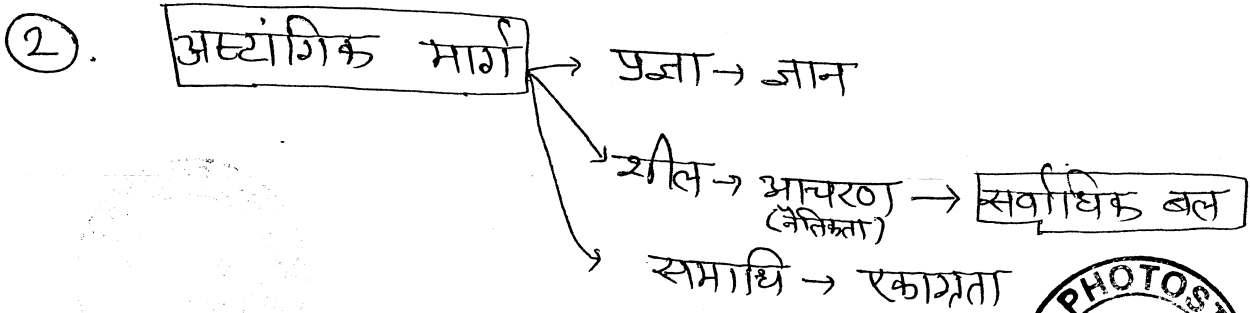 ②. अष्टांगिक मार्ग → प्रज्ञा → ज्ञान
शील → आचरण → सर्वाधिक बल
(नैतिकता)
समाधि → एकाग्रता
PHOTOST